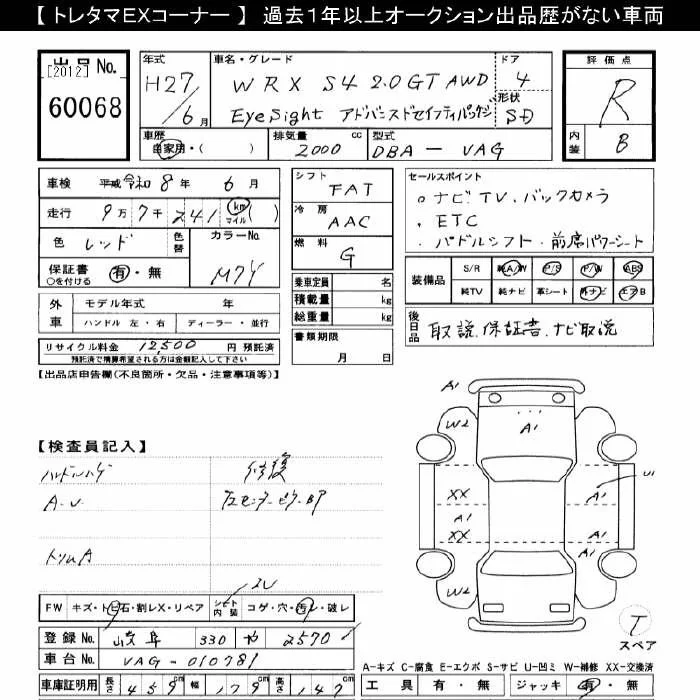 【 トレタマEXコーナー 】 過去１年以上オークション出品歴がない車両
出品No.
[2012]
60068
年式
H27/6月
車名・グレード
WRX S4 2.0GT AWD
EyeSight アドバンスドセイフティパッケージ
ドア
4
形状
SD
評価点
R
内装
B
車歴
自家用・( )
排気量
2000 cc
型式
DBA－VAG
車検 平成 令和 8年 6月
走行 9万7千241 km マイル ( )
色 レッド 色替
カラーNo.
M7Y
保証書 ○を付ける 有・無
外車
モデル年式 年
ハンドル 左・右 ディーラー・並行
リサイクル料金 12,500 円 預託済
預託済で精算希望される方は金額記入して下さい
シフト
FAT
冷房
AAC
燃料
G
乗車定員 名
積載量 kg
総重量 kg
書類期限
月 日
セールスポイント
ナビ TV、バックカメラ
ETC
パドルシフト・前席パワーシート
装備品
S/R 純A/W P/S P/W ABS
純TV 純ナビ 革シート 外ナビ エアB
後日品
取説、保証書、ナビ取説
【出品店申告欄(不良箇所・欠品・注意事項等)】
【検査員記入】
修復
A.U
左センターピラーBP
トリムA
FW キズ・トビ石・割レX・リペア シート内装 コゲ・穴・汚レ・破レ
登録No. 岐阜 330 や 2570
車台No. VAG-010781
車庫証明用 長さ 459cm 幅 179cm 高さ 147cm
A1
W2
A1
XX
A1
XX
W2
U1
A1
A1
T
スペア
A-キズ C-腐食 E-エクボ S-サビ U-凹ミ W-補修 XX-交換済
工具 有・無 ジャッキ 有・無